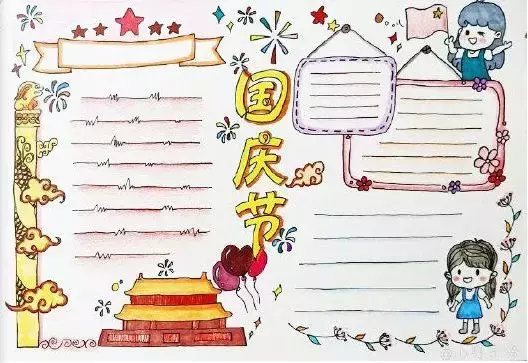 国
庆
节